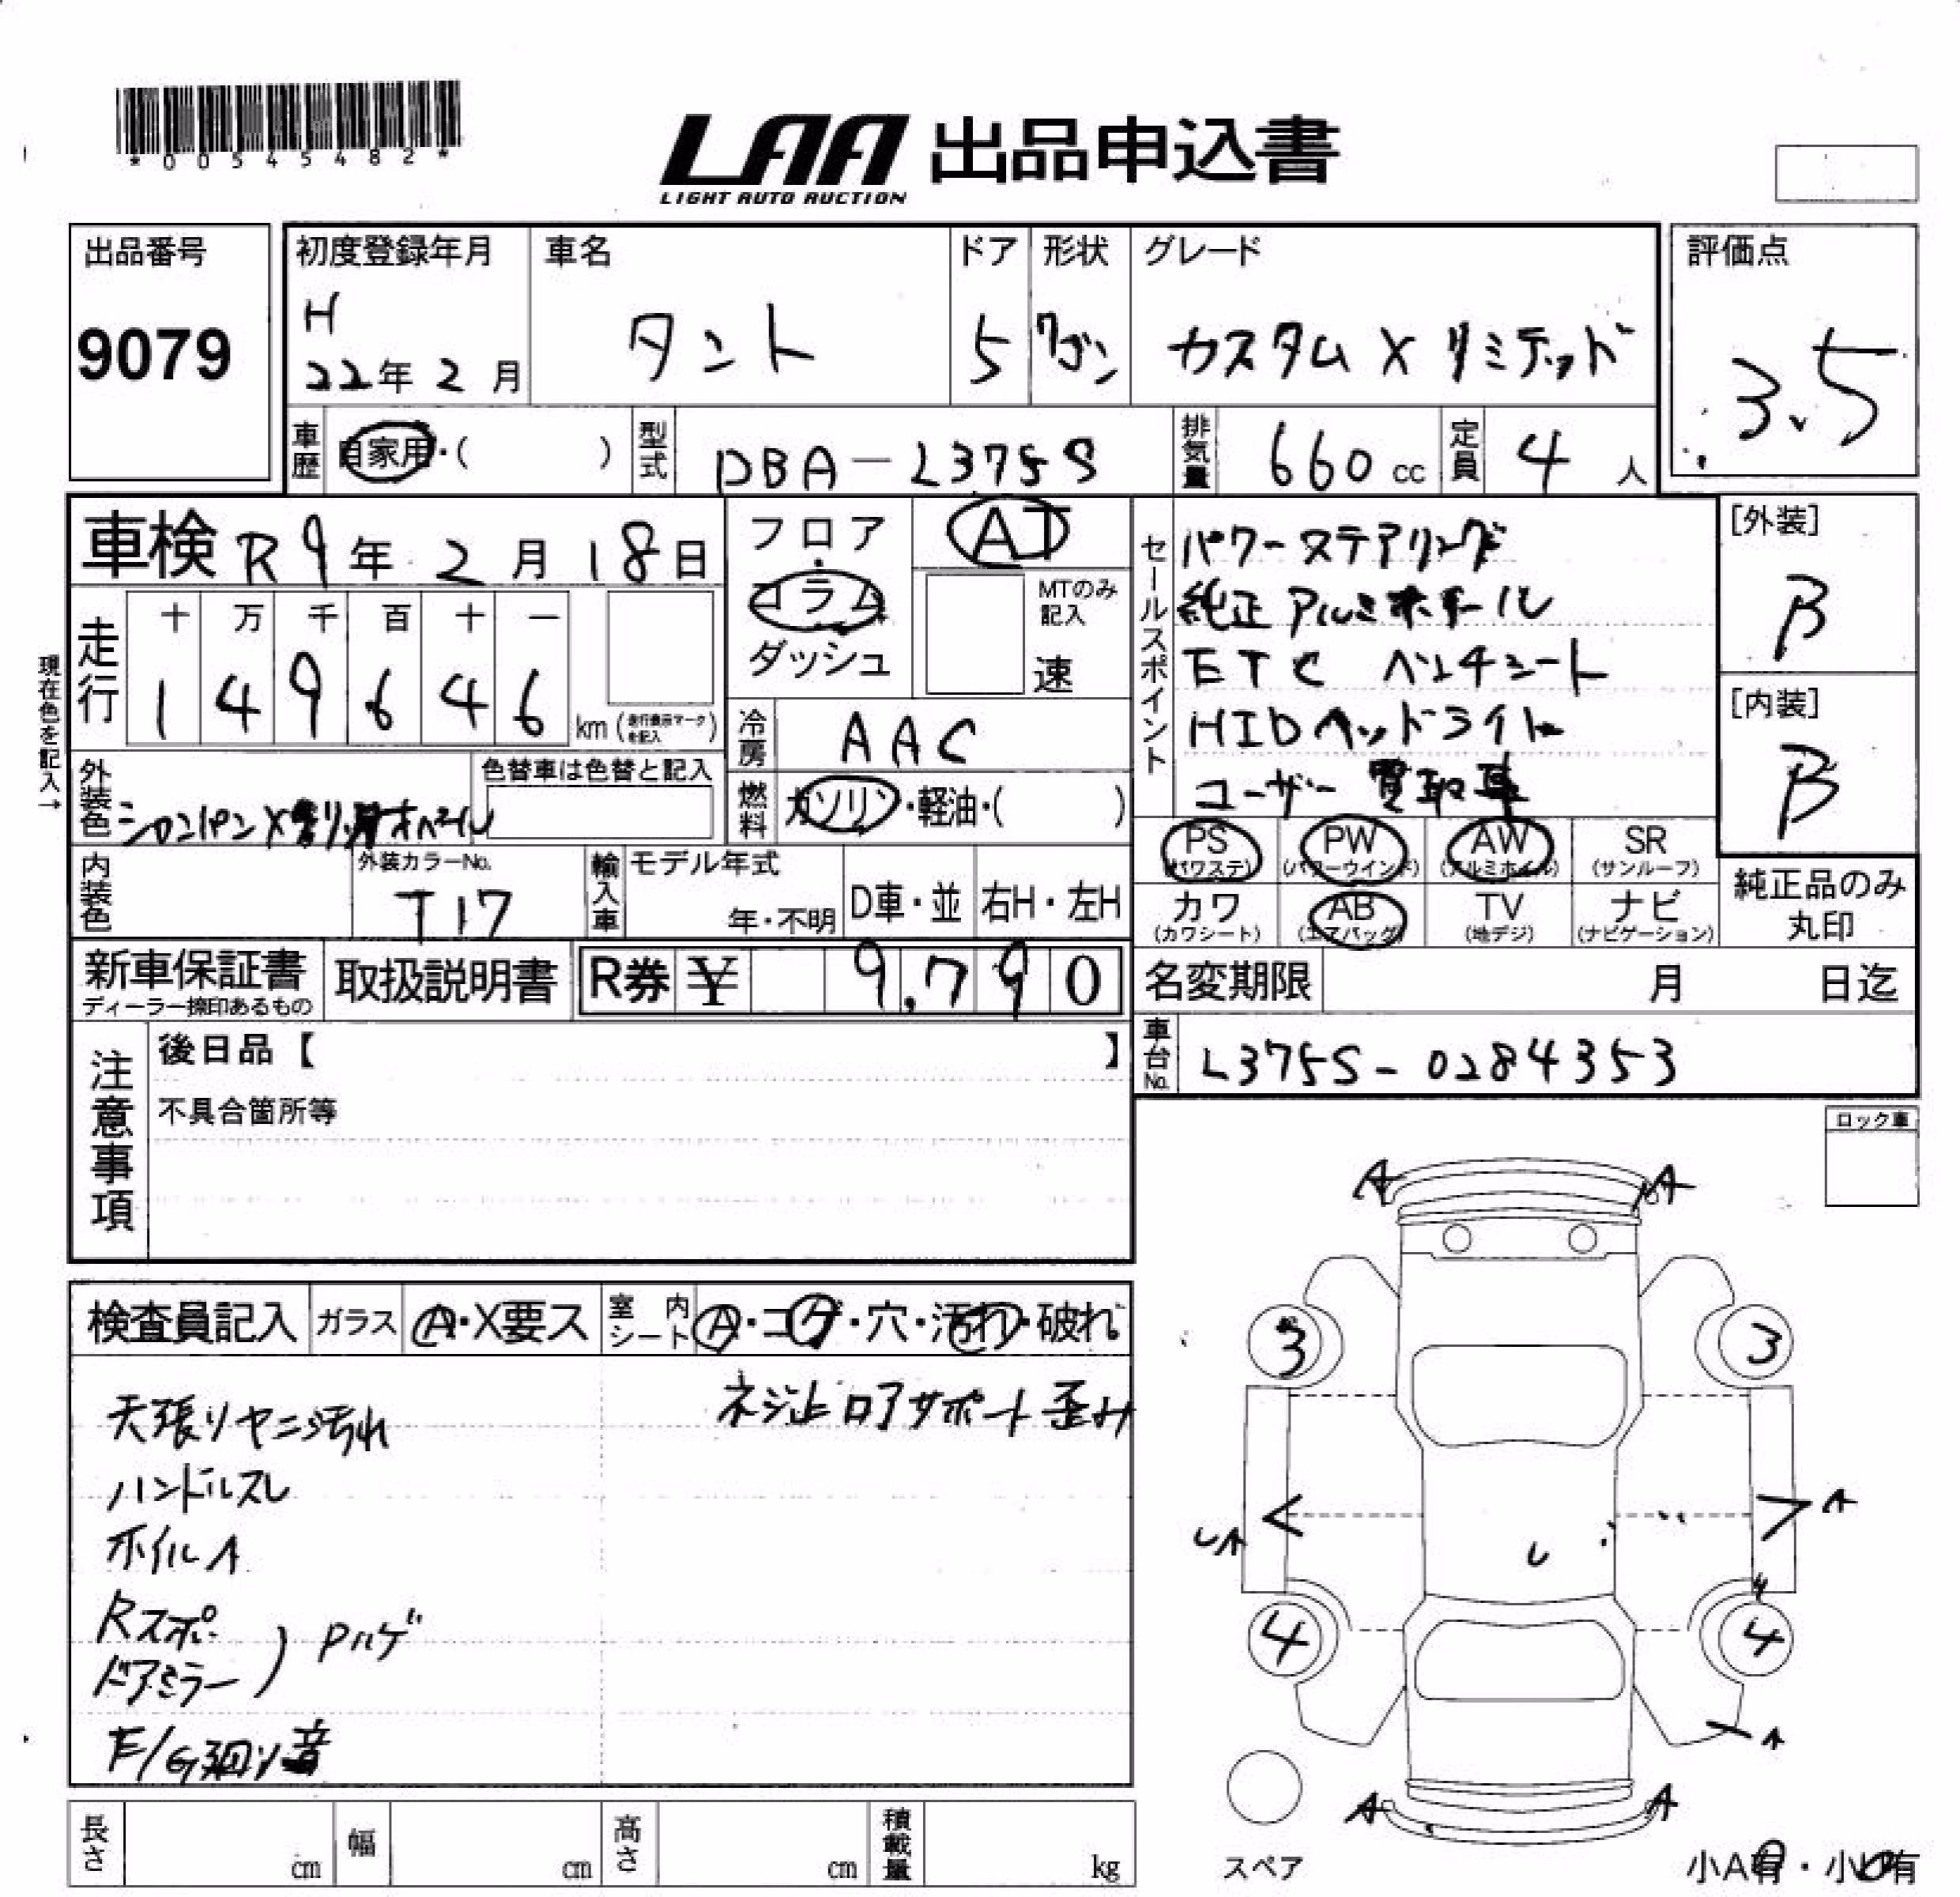 *00545482*
LAA 出品申込書
LIGHT AUTO AUCTION
出品番号
9079
初度登録年月
H
22年 2月
車名
タント
ドア
5
形状
ワゴン
グレード
カスタム X リミテッド
評価点
3.5
車歴
自家用・( )
型式
DBA-L375S
排気量
660 cc
定員
4 人
車検 R9年 2月 18日
フロア
・
コラム
・
ダッシュ
AT
MTのみ
記入
速
セールスポイント
パワーステアリング
純正 アルミホイール
ETC ベンチシート
HIDヘッドライト
ユーザー 買取車
[外装]
B
[内装]
B
現在色を記入→
走行
十 万 千 百 十 一
1 4 9 6 4 6
km (走行表示マークを記入)
冷房
AAC
燃料
ガソリン・軽油・( )
外装色
色替車は色替と記入
内装色
外装カラーNo.
T17
輸入車
モデル年式
年・不明
D車・並
右H・左H
PS
(パワステ)
PW
(パワーウインド)
AW
(アルミホイル)
SR
(サンルーフ)
カワ
(カワシート)
AB
(エアバッグ)
TV
(地デジ)
ナビ
(ナビゲーション)
純正品のみ
丸印
新車保証書
ディーラー捺印あるもの
取扱説明書
R券 ¥ 9,790
名変期限
月 日迄
車台No.
L375S-0284353
注意事項
後日品【 】
不具合箇所等
ロック車
検査員記入
ガラス
A・X要ス
室内シート
A・コゲ・穴・汚れ・破れ
天張りヤニ汚れ
ネジ止ロアサポート歪み
ハンドルスレ
ホイルA
Rスポ
ドアミラー
) Pハゲ
E/G廻り音
A A
3 3
A
UA
U
4 4
A
A A
スペア
小A有・小U有
長さ
cm
幅
cm
高さ
cm
積載量
kg